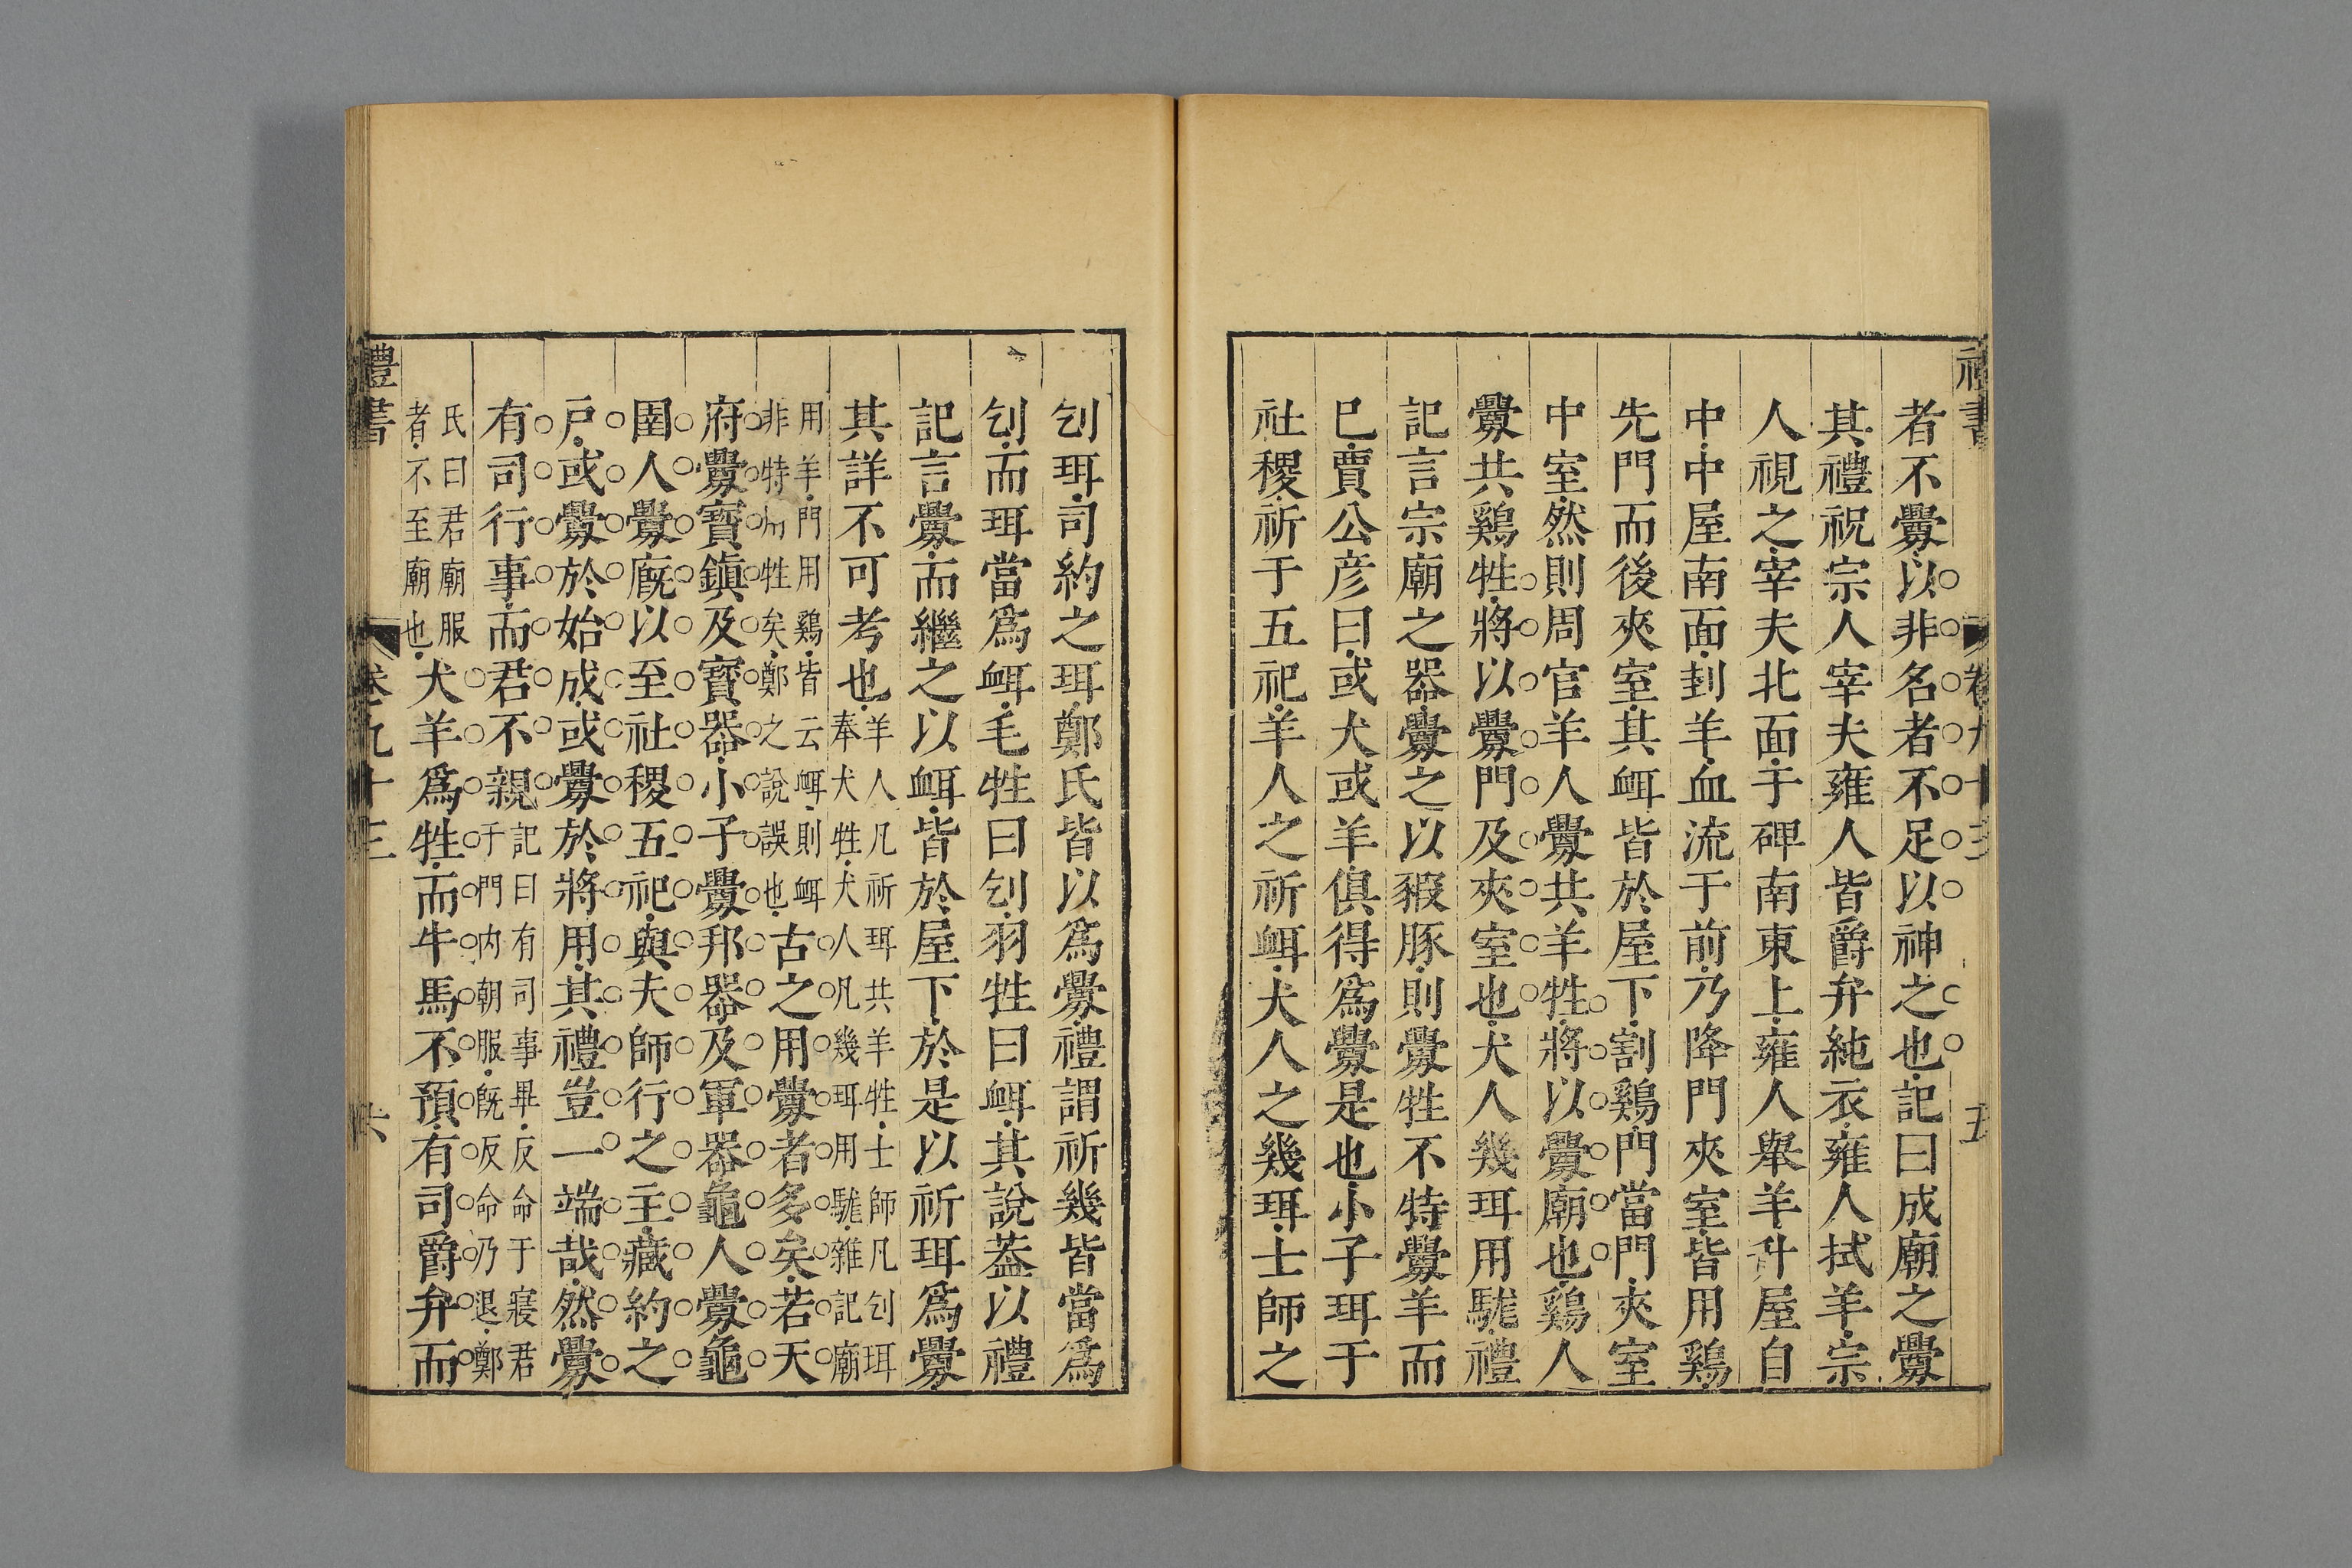 禮書 卷九十三 五
者不釁以非名者不足以神之也記曰成廟之釁
其禮祝宗人宰夫雍人皆爵弁純衣雍人拭羊宗
人視之宰夫北面于碑南東上雍人舉羊升屋自
中中屋南面刲羊血流于前乃降門夾室皆用鷄
先門而後夾室其衈皆於屋下割鷄門當門夾室
中室然則周官羊人釁共羊牲將以釁廟也鷄人
釁共鷄牲將以釁門及夾室也犬人幾珥用駹禮
記言宗廟之器釁之以豭豚則釁牲不特釁羊而
巳賈公彦曰或犬或羊俱得爲釁是也小子珥于
社稷祈于五祀羊人之祈衈犬人之幾珥士師之
刉珥司約之珥鄭氏皆以爲釁禮謂祈幾皆當爲
刉而珥當爲衈毛牲曰刉羽牲曰衈其說葢以禮
記言釁而繼之以衈皆於屋下於是以祈珥爲釁
其詳不可考也羊人凡祈珥共羊牲士師凡刉珥
奉犬牲犬人凡幾珥用駹雜記廟
用羊門用鷄皆云衈則衈
非特 牲矣鄭之說誤也古之用釁者多矣若天
府釁寳鎮及寳器小子釁邦器及軍器龜人釁龜
圉人釁廐以至社稷五祀與夫師行之主藏約之
戸或釁於始成或釁於將用其禮豈一端哉然釁
有司行事而君不親記曰有司事畢反命于寢君
于門内朝服旣反命乃退鄭
氏曰君廟服
者不至廟也犬羊爲牲而牛馬不預有司爵弁而
禮書 卷九十三 六